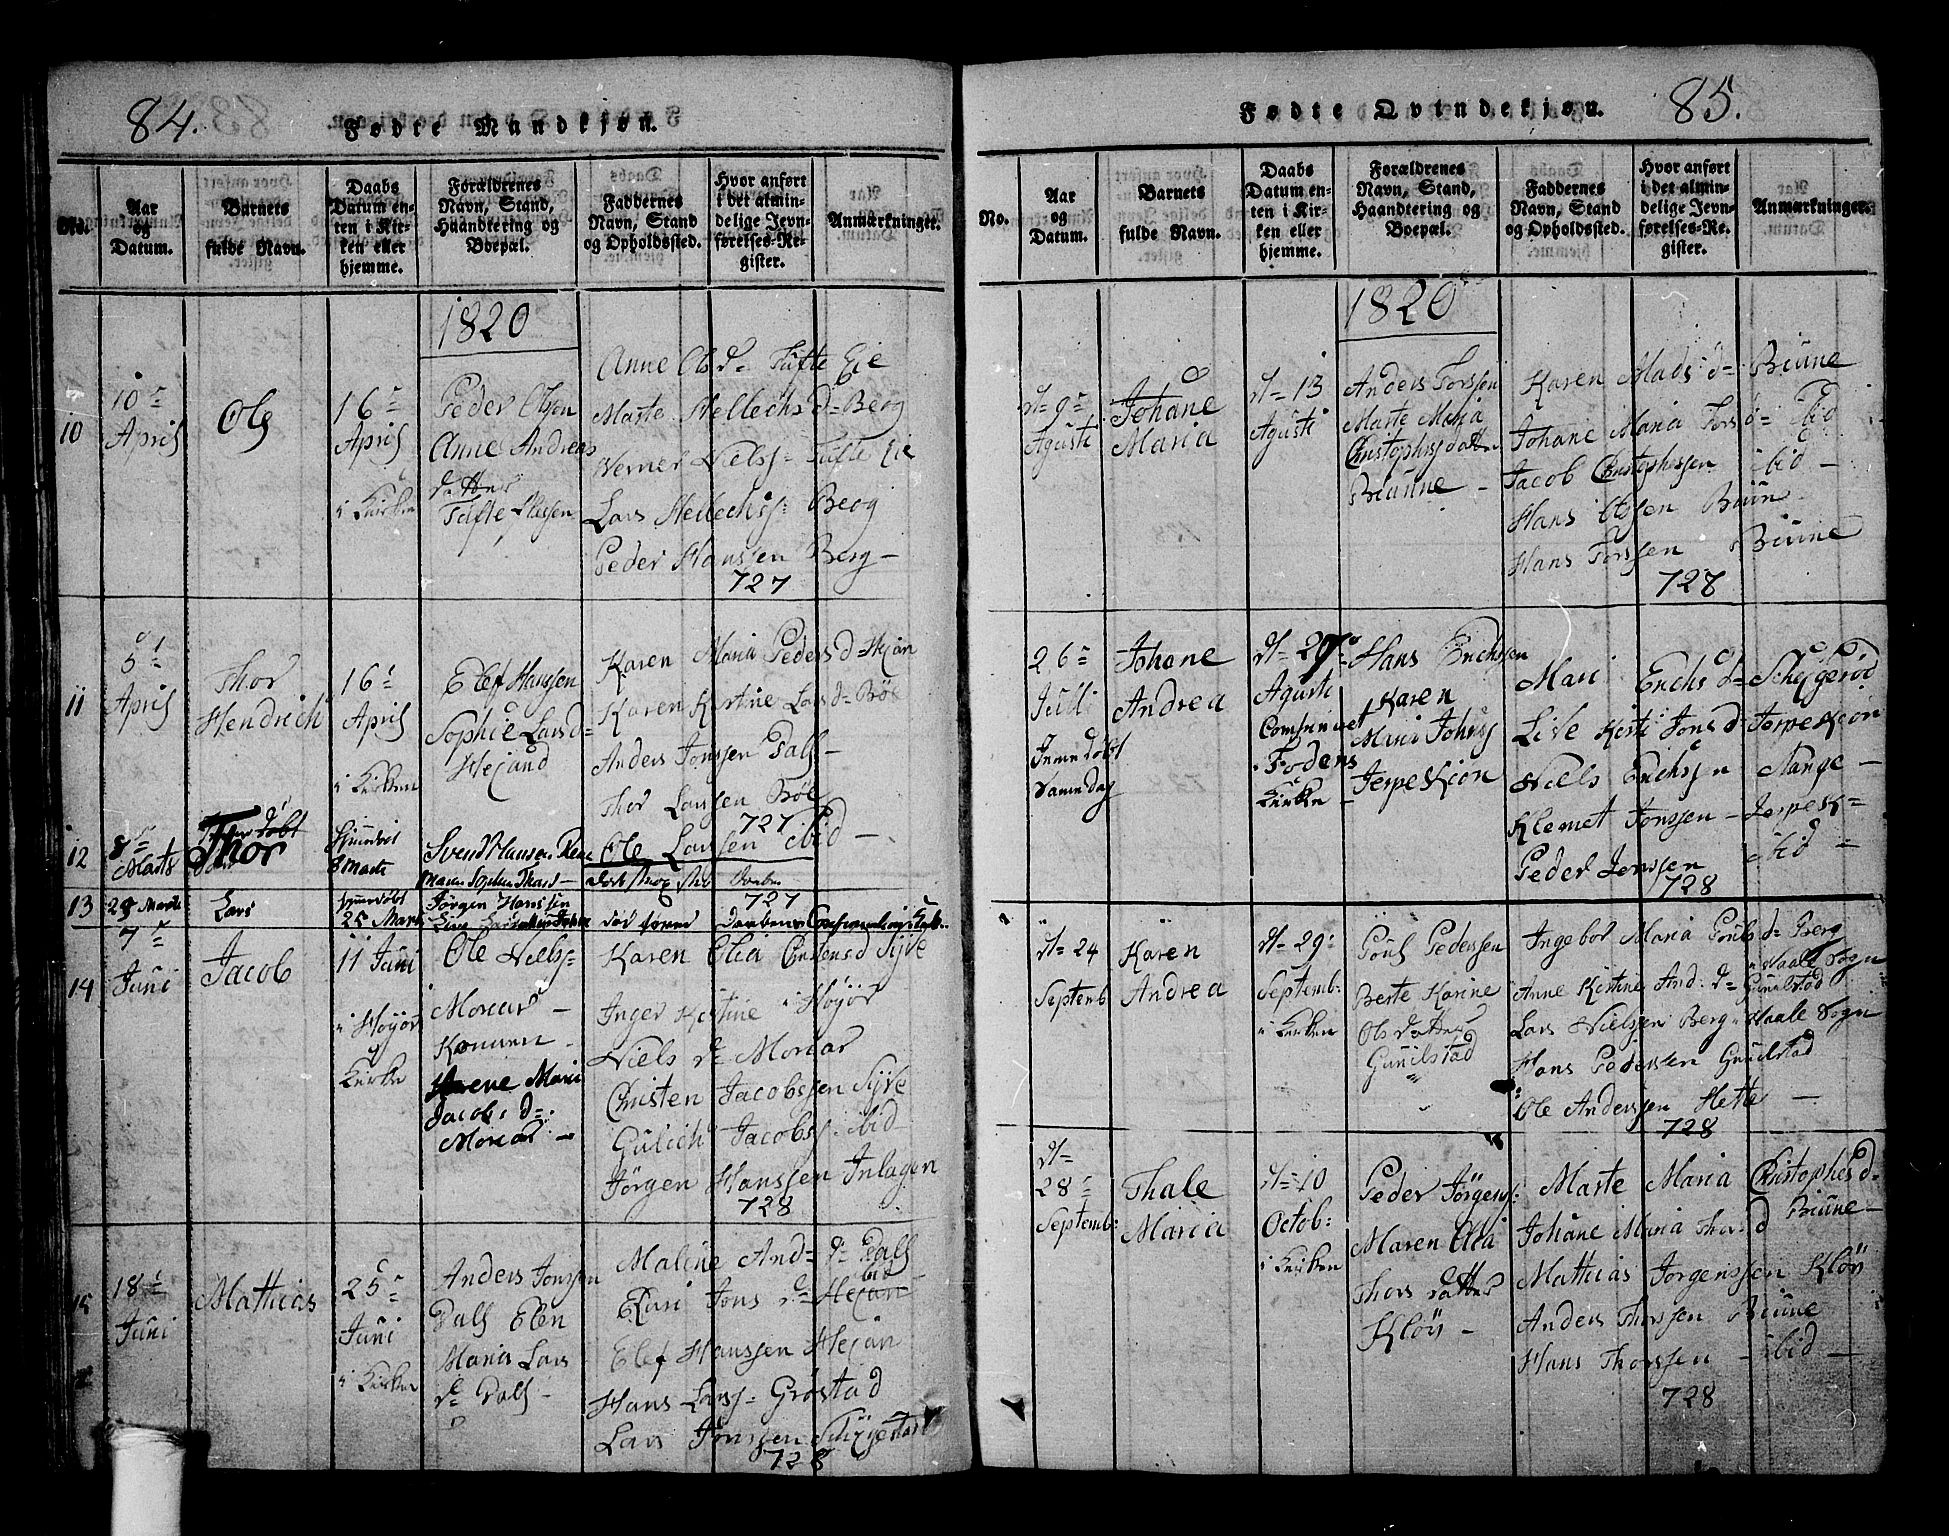 84.
Fødte Mandkjøn.
No.
Aar
og
Datum.
Barnets
fulde Navn.
Daabs
Datum en-
ten i Kir-
ken eller
hjemme.
Forældrenes
Navn, Stand,
Haandtering og
Boepæl.
Faddernes
Navn, Stand
og Opholdssted.
Hvor anført
i det almin-
delige Jevn-
førelses-Re-
gister.
Anmærkninger.
1820
10
10
April
Ole
16
April
i Kirken
Peder Olssen
Anne Andreas
datter
Tufte
Anne Ols d= Tufte Eie
Marte Hellechs d= Berg
Verner Nielss= Tufte Eie
Lars Hellechss= Berg
Peder Hanssen Berg —
727
11
5
April
Thor
Hendrich
16
April
i Kirken
Elef Hanssen
Sophie Lars d=
Hejand
Karen Maria Peders d= Hejan
Karen Kirstine Lars d= Bøe
Anders Jonssen Dals —
Thor Larssen Bøe
727
Ole Larssen ibid —
12
8
Marts
Thor
8 Marts
Svend Hansen
13
29 Marts
Lars
25 Marts
Jørgen Hanssen
727
14
7
Juni
Jacob
11 Juni
i Høyør
Kirke
Ole Nielss=
Moriar —
Konnen —
Marie
Jacobs d=
Moriar —
Karen Olia Christens d Syve
Inger Kistine i Høyør
Niels d= Moriar
Christen Jacobssen Syve
Gulich Jacobss: ibid
Jørgen Hanssen Inlagen
728
15
18
Juni
Mathias
25
Juni
i Kirken
Anders Jonssen
Dals Elen
Maria Lars
d= Dals —
Maline And= d= Dals
Kari Jons d= ibid
Elef Hanssen Hejan
Hans Larss: Grøstad
Lars Jonssen
728
Fødte Qvindekjøn.
85.
No.
Aar
og
Datum.
Barnets
fulde Navn.
Daabs
Datum en-
ten i Kir-
ken eller
hjemme.
Forældrenes
Navn, Stand,
Haandtering og
Boepæl.
Faddernes
Navn, Stand
og Opholdssted.
Hvor anført
i det almin-
delige Jevn-
førelses-Re-
gister.
Anmærkninger.
1820
d= 9
Agusti
Johane
Maria
d= 13
Agusti
Anders Torssen
Marte Maria
Christophersdatter
Bruune —
Karen Mads d= Bruune
Johane Maria Tors d= ibid
Jacob Christophssen ibid —
Hans Olssen Bruun —
Hans Torssen Bruune
728
26
Juli
Johane
Andrea
d= 27
Agusti
Kirke —
Hans Erichssen
Karen
Maria Johns
Jerpekjon
Mari Erichs d= Schejgerød
Live Kirsti Jons d= Jerpekjon
Niels Erichssen Nange —
Klemet Jonssen — Jerpek=
Peder Jonssen ibid —
728
d= 24
Septemb
Karen
Andrea
d= 29
Septemb:
i Kirken
Pouls Pederssen
Berte Karine
Ols datter
Gunilstad
Ingebor Maria Pouls d= Berg
i Vaale Sogn
Anne Kirstine And: d= Gunilstad
Lars Nielssen Berg i Vaale Sogn
Hans Pederssen Gunilstad
Ole Anderssen Hette —
728
d=
28
Septemb:
Thale
Maria
d= 10
Octob:
i Kirken
Peder Jørgenss:
Maren Olia
Thors datter
Kløv —
Marte Maria Christophes d=
Johane Maria Thors d Bruune —
Mathias Jørgenssen Kløv
Anders Thorssen Bruune
Hans Thorssen — ibid —
728